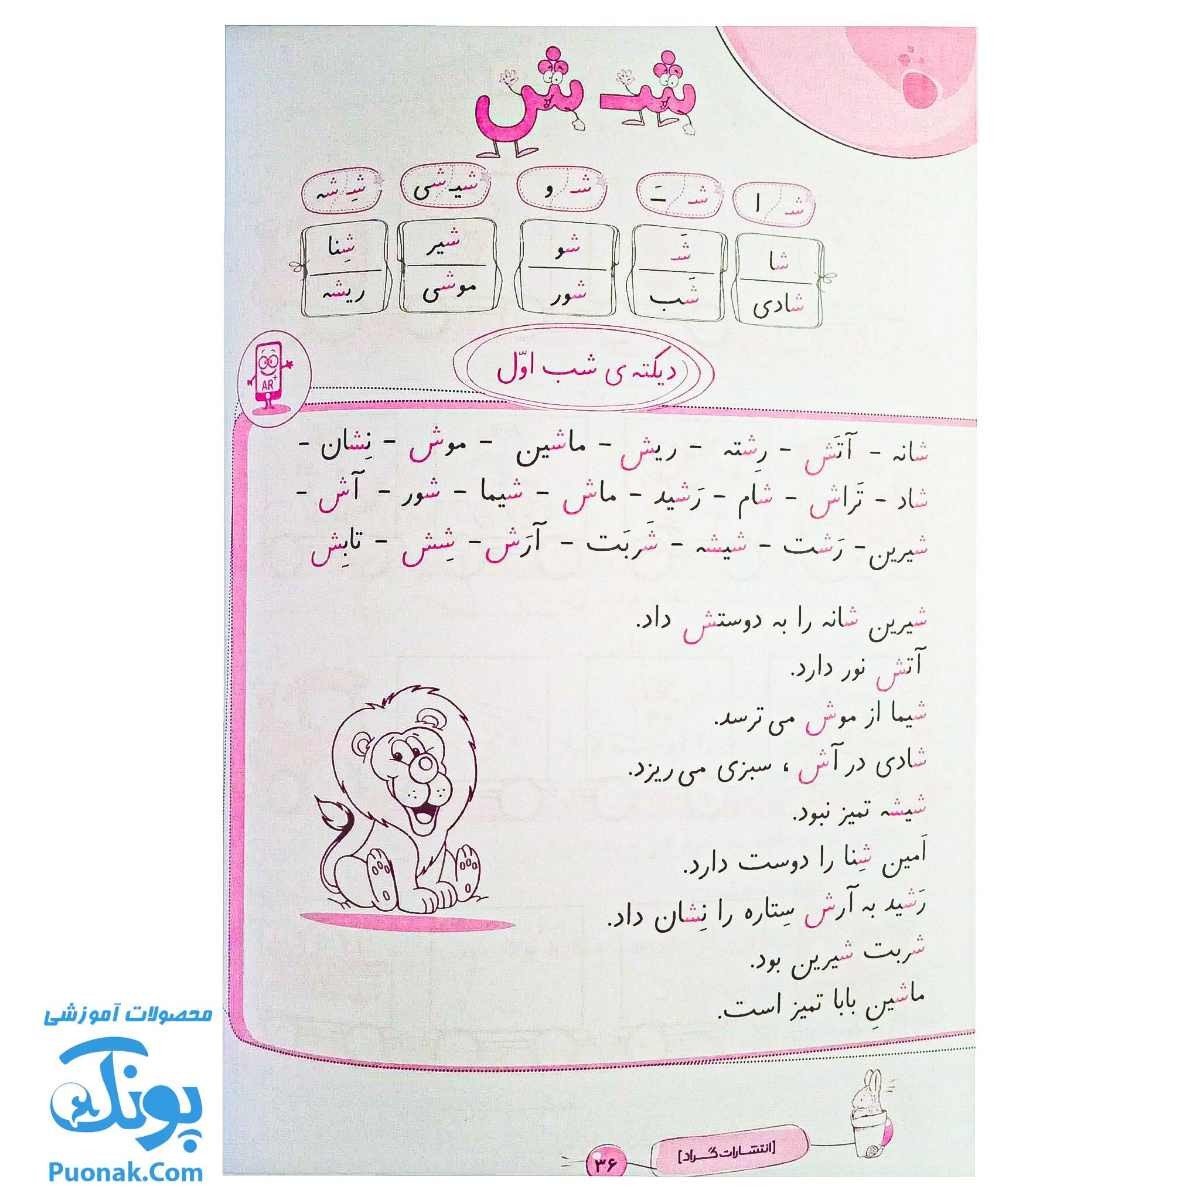 شـ ش
شـ ا
شـ ـَ
شـ و
شیـ شی
شِـ شه
شا
شَـ
شو
شیر
شِنا
شادی
شَب
شور
موشی
ریشه
دیکته ی شب اوّل
AR+
شانه - آتَش - رِشته - ریش - ماشین - موش - نِشان -
شاد - تَراش - شام - رَشید - ماش - شیما - شور - آش -
شیرین - رَشت - شیشه - شَربَت - آرَش - شِش - تابِش
شیرین شانه را به دوستش داد.
آتش نور دارد.
شیما از موش می ترسد.
شادی در آش ، سبزی می ریزد.
شیشه تمیز نبود.
اَمین شِنا را دوست دارد.
رَشید به آرش سِتاره را نِشان داد.
شربت شیرین بود.
ماشینِ بابا تمیز است.
[انتشارات گراد]
۳۶
محصولات آموزشی
پونک
Puonak.Com